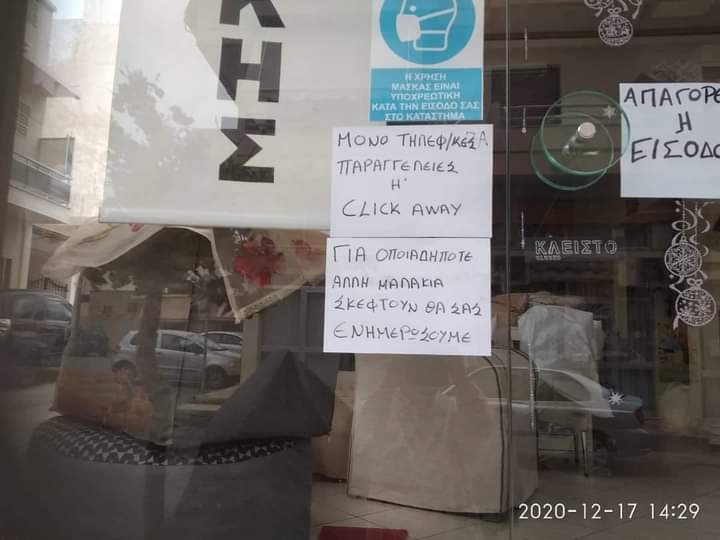 ΜΗΚ
Η ΧΡΗΣΗ
ΜΑΣΚΑΣ ΕΙΝΑΙ
ΥΠΟΧΡΕΩΤΙΚΗ
ΚΑΤΑ ΤΗΝ ΕΙΣΟΔΟ ΣΑΣ
ΣΤΟ ΚΑΤΑΣΤΗΜΑ
ΜΟΝΟ ΤΗΛΕΦ/ΚΕΣ
ΠΑΡΑΓΓΕΛΕΙΕΣ
Η'
CLICK AWAY
ΓΙΑ ΟΠΟΙΑΔΗΠΟΤΕ
ΑΛΛΗ ΜΑΛΑΚΙΑ
ΣΚΕΦΤΟΥΝ ΘΑ ΣΑΣ
ΕΝΗΜΕΡΩΣΟΥΜΕ
ΑΠΑΓΟΡΕ
Η
ΕΙΣΟΔΟ
ΚΛΕΙΣΤΟ
CLOSED
2020-12-17 14:29